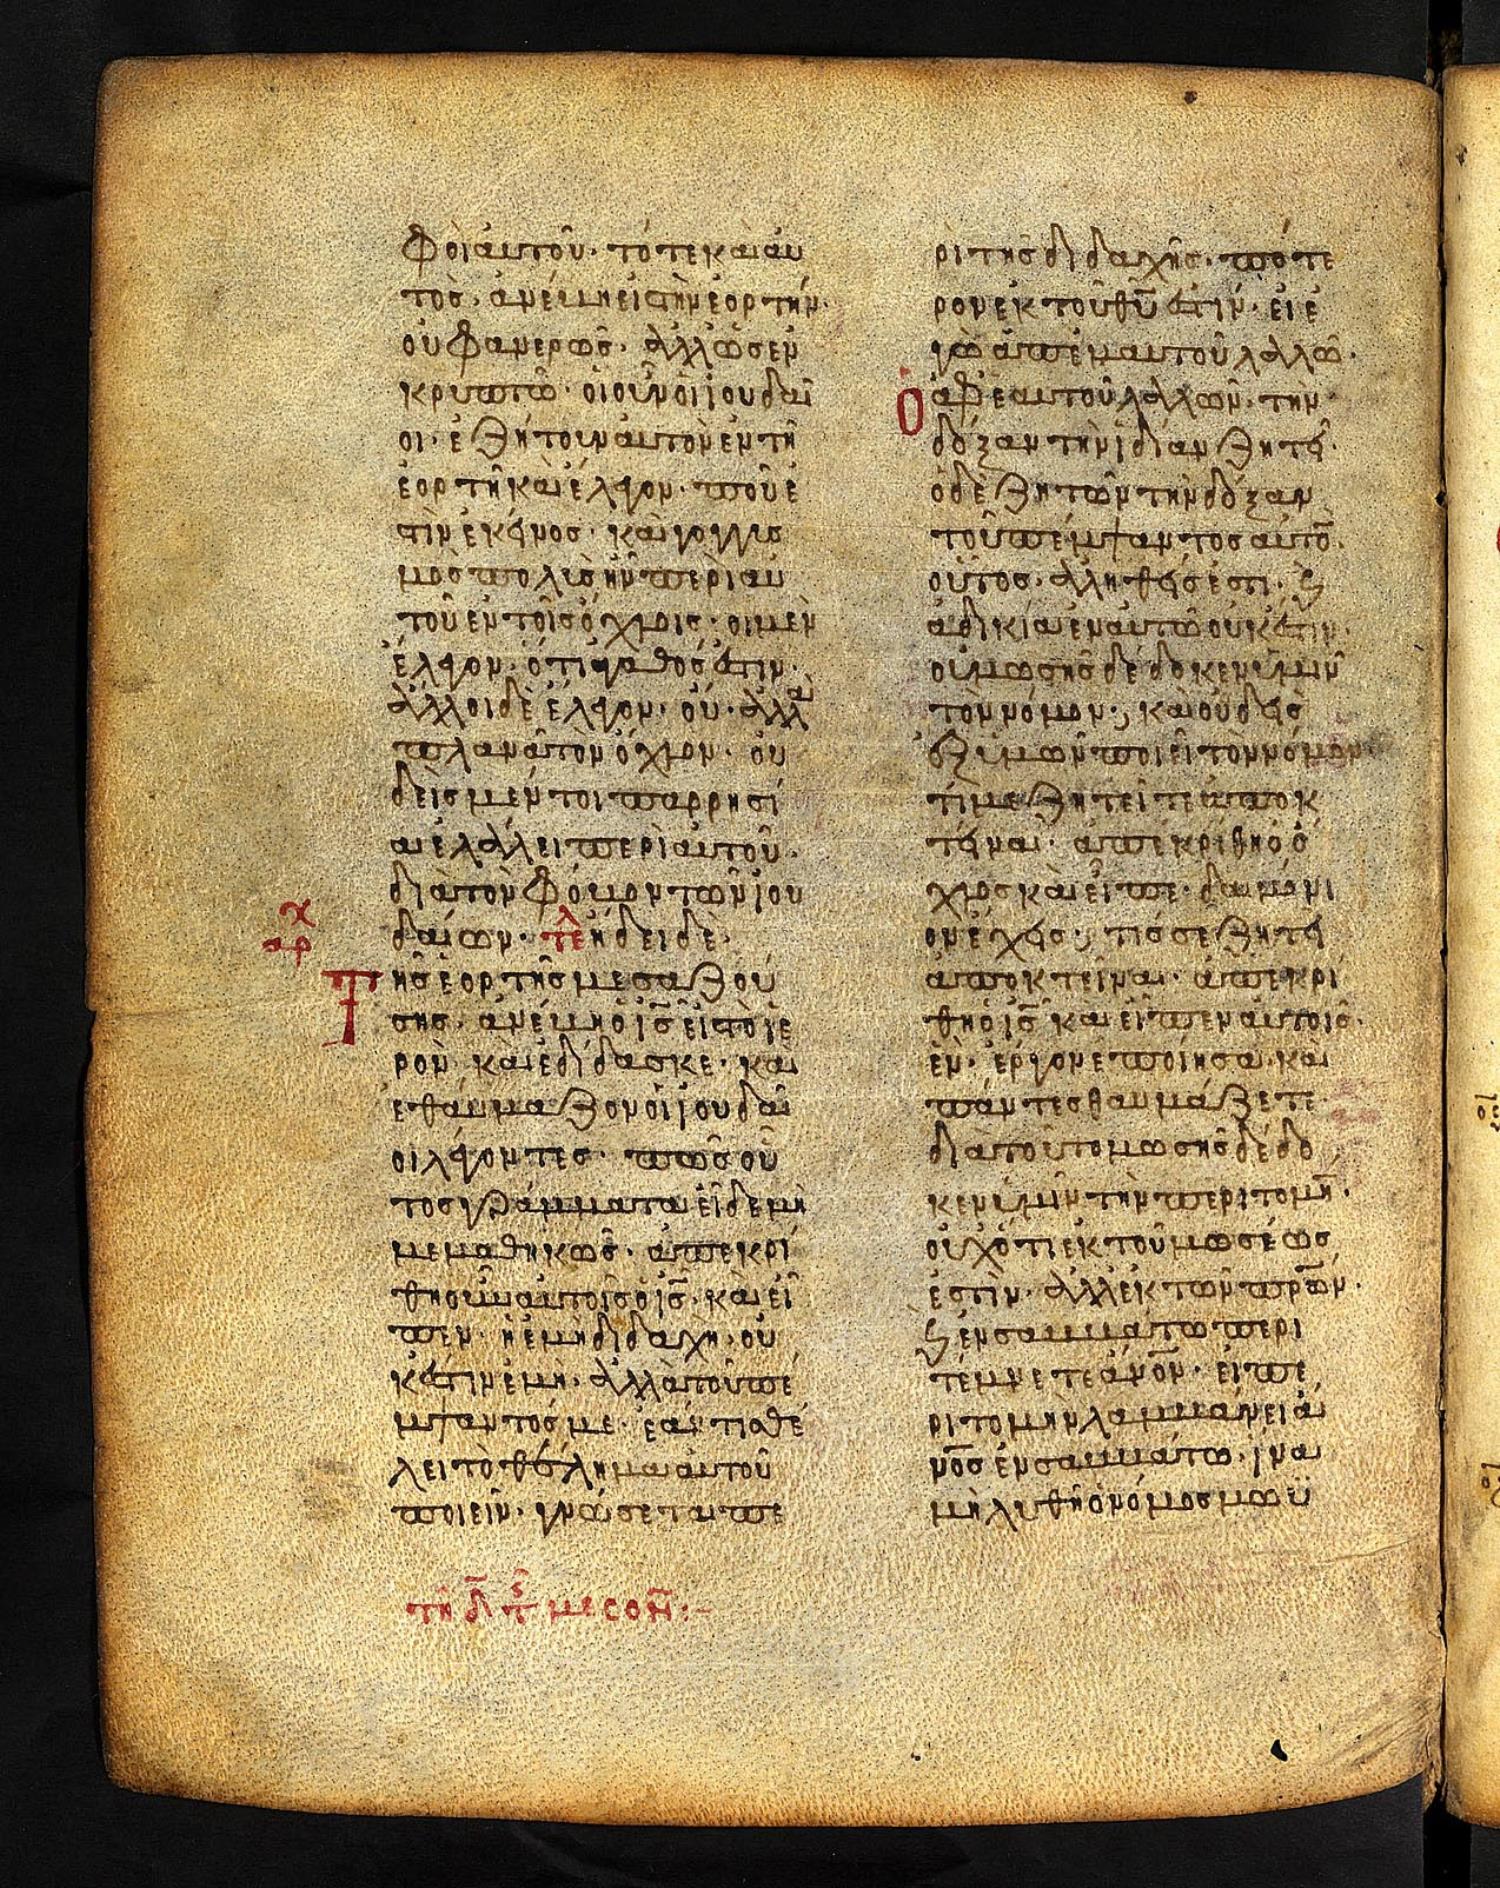 φοὶ αυτοῦ· τότε καὶ αυ
τὸς· ἀνέβη εἰς τὴν ἑορτήν·
οὐ φανερῶς· ἀλλ' ὡς ἐν
κρυπτῶ· οἱ οὖν ἰουδαῖ
οι· ἐζήτουν αυτὸν ἐν τῆ
ἑορτῆ καὶ ἔλεγον· ποῦ ἐ
στὶν ἐκεῖνος· καὶ γογγυσ
μὸς πολὺς ἦν περὶ αυ
τοῦ ἐν τοῖς ὄχλοις· οι μὲν
ἔλεγον· ὅτι ἀγαθός ἐστιν·
ἄλλοι δὲ ἔλεγον· οὐ· ἀλλὰ
πλανᾶ τὸν ὄχλον· οὐ
δεὶς μέντοι παρρησί
α ἐλάλει περὶ αυτοῦ·
διὰ τὸν φόβον τῶν ἰου
δαίων· τελ ἤδει δὲ·
χ
αρ
Τῆς ἑορτῆς μεσαζού
σης· ἀνέβη ὁ ις εἰς τὸ ἱε
ρὸν· καὶ ἐδίδασκε· και
ἐθαύμαζον οἱ ἰουδαῖ
οι λέγοντες· πῶς οὗ
τος γράμματα εἶδε μὴ
μεμαθηκῶς· ἀπεκρί
θη οὖν αυτοῖς ὁ ις· καὶ εἶ
πεν· ἡ ἐμὴ διδαχὴ· οὐ
κ ἔστιν ἐμὴ· ἀλλὰ τοῦ πέ
μψαντός με· ἐάν τις θέ
λει τὸ θέλημα ἀυτοῦ
ποιεῖν· γνώσεται πε
τῆ δ τ μεσον:-
ρὶ τῆς διδαχῆς· πότε
ρον ἐκ τοῦ θυ ἐστὶν· ἢ ἐ
γὼ ἀπ' ἐμαυτοῦ λαλῶ·
Ὁ ἀφ' ἑαυτοῦ λαλῶν· τὴν
δόξαν τὴν ἰδίαν ζητεῖ·
ὁ δὲ ζητῶν τὴν δόξαν
τοῦ πέμψαντος αυτὸ·
οὗτος· ἀληθής ἐστι· ϗ
ἀδικία ἐν αυτῶ οὐκ ἔστιν·
οὐ μωσῆς δέδοκεν ὑμῖν
τὸν νόμον; καὶ οὐδεὶς
ἐξ ὑμῶν ποιεῖ τὸν νόμον·
τί με ζητεῖτε ἀποκ
τεῖναι· ἀπεκρίθη ὁ ὄ
χλος καὶ εἶπε· δαιμόνι
ον ἔχεις; τίς σε ζητεῖ
ἀποκτεῖναι· ἀπεκρί
θη ὁ ις καὶ εἶπεν αυτοῖς·
ἓν· ἔργον ἐποίησα· καὶ
πάντες θαυμάζετε·
διὰ τοῦτο μωσῆς δέδο
κεν ὑμῖν τὴν περιτομὴ·
οὐχ ὅτι ἐκ τοῦ μωσέως
ἐστὶν· ἀλλ' ἐκ τῶν πρων·
ϗ ἐν σαββάτω περι
τέμνετε ἀνον· εἰ πε
ριτομὴν λαμβάνει ἄ
νος ἐν σαββάτω· ἵνα
μὴ λυθῆ ὁ νόμος μωϋ